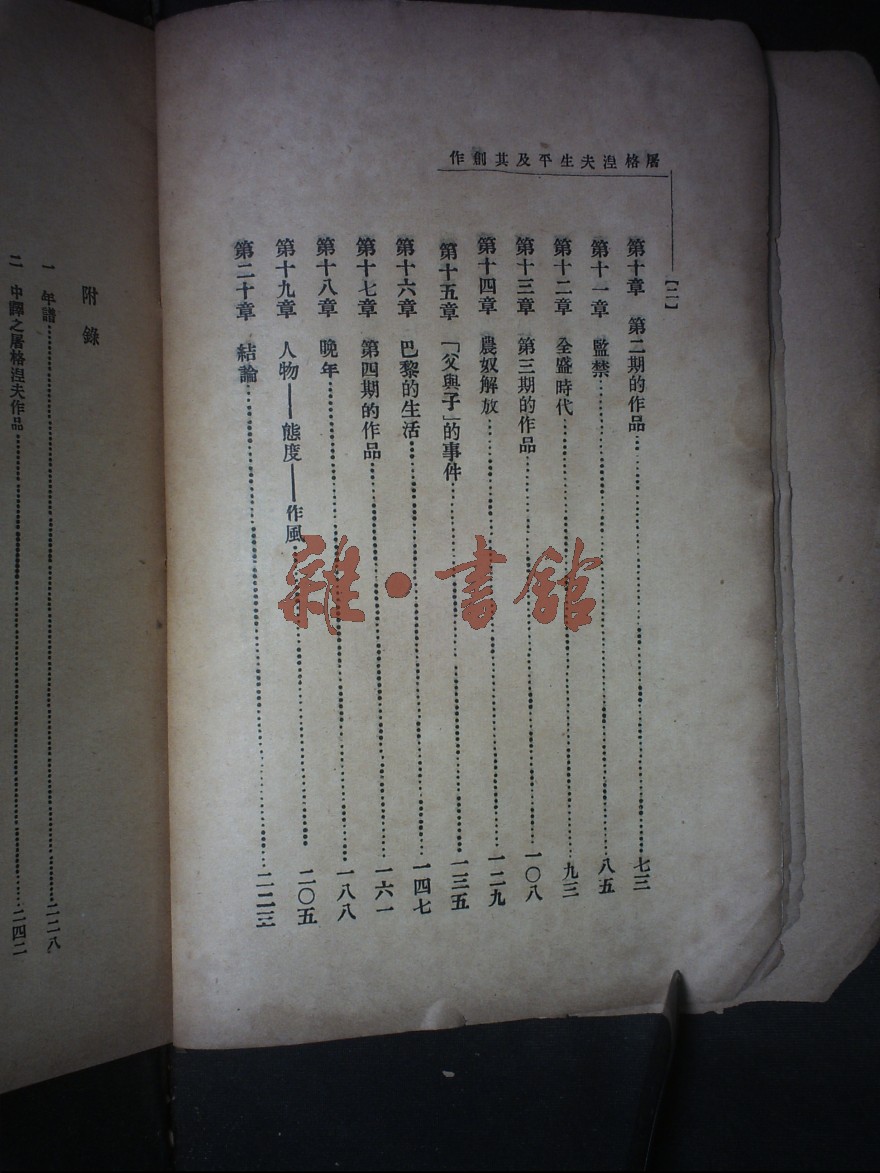 屠格涅夫生平及其創作
【二】
第十章 第二期的作品……七三
第十一章 監禁……八五
第十二章 全盛時代……九三
第十三章 第三期的作品……一〇八
第十四章 農奴解放……一二九
第十五章 「父與子」的事件……一三五
第十六章 巴黎的生活……一四七
第十七章 第四期的作品……一六一
第十八章 晚年……一八八
第十九章 人物——態度——作風……二〇五
第二十章 結論……二二三
附錄
一 年譜……二二八
二 中譯之屠格涅夫作品……二四二
雜·書舘